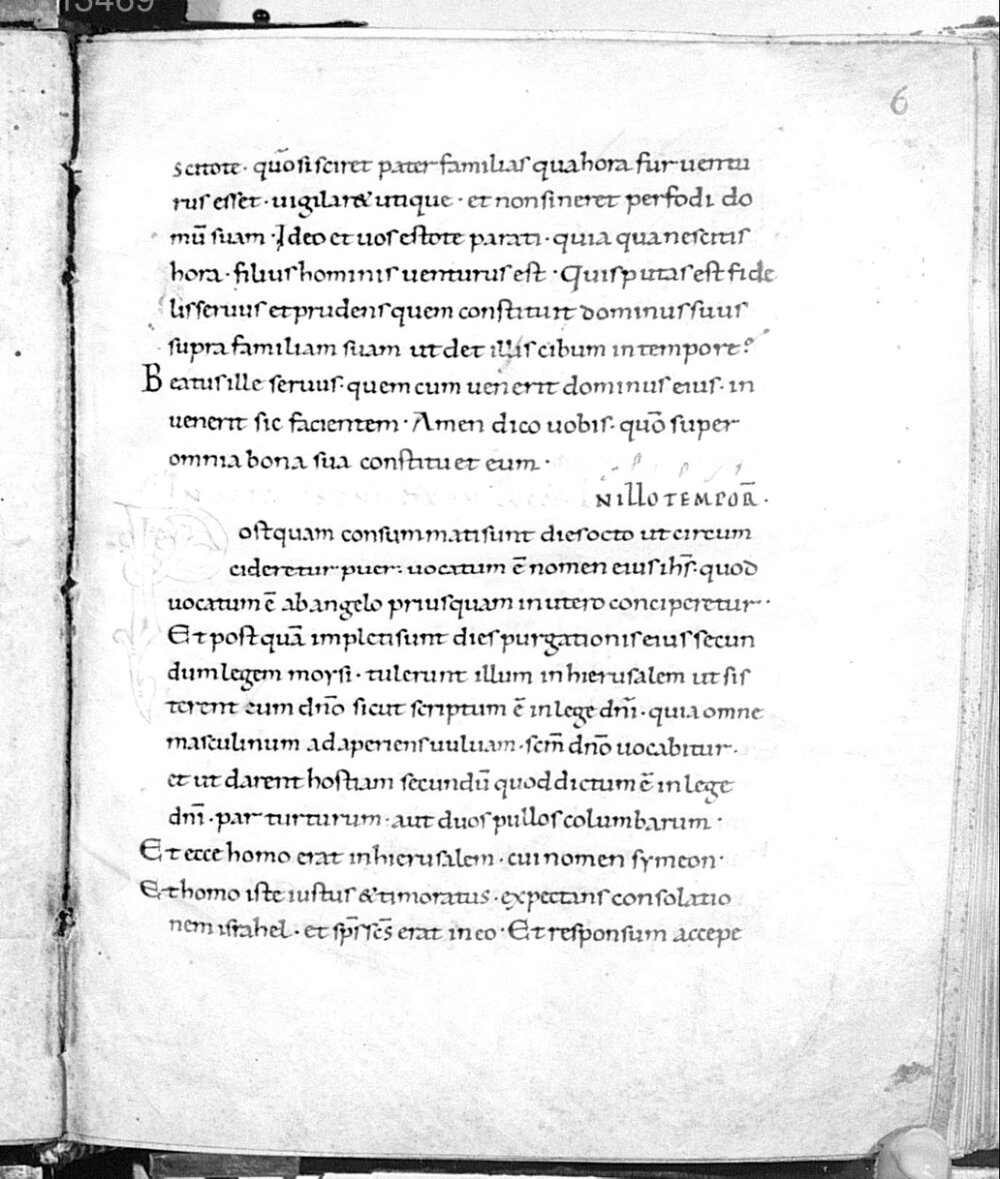 13489
6
scitote · quō si sciret pater familias qua hora fur ventu
rus esset · uigilar& utique · et non sineret perfodi do
mū suam · Ideo et uos estote parati · quia qua nescitis
hora · filius hominis uenturus est · Quis putas est fide
lis seruus et prudens quem constituit dominus suus
supra familiam suam ut det illis cibum in tempore?
Beatus ille seruus · quem cum uenerit dominus eius · in
uenerit sic facientem · Amen dico uobis · quō super
omnia bona sua constituet eum ·
N ILLO TEMPOR̄ ·
ostquam consummati sunt dies octo ut circum
cideretur puer : uocatum ē nomen eius ih̄s · quod
uocatum ē ab angelo priusquam in utero conciperetur ·
Et post quā impleti sunt dies purgationis eius secun
dum legem moysi · tulerunt illum in hierusalem ut sis
terent eum dn̄o sicut scriptum ē in lege dn̄i · quia omne
masculinum adaperiens uuluam · scm̄ dn̄o uocabitur ·
et ut darent hostiam secundū quod dictum ē in lege
dn̄i · par turturum · aut duos pullos columbarum ·
Et ecce homo erat in hierusalem · cui nomen symeon ·
Et homo iste iustus & timoratus · expectans consolatio
nem israhel · et sp̄s sc̄s erat in eo · Et responsum accepe